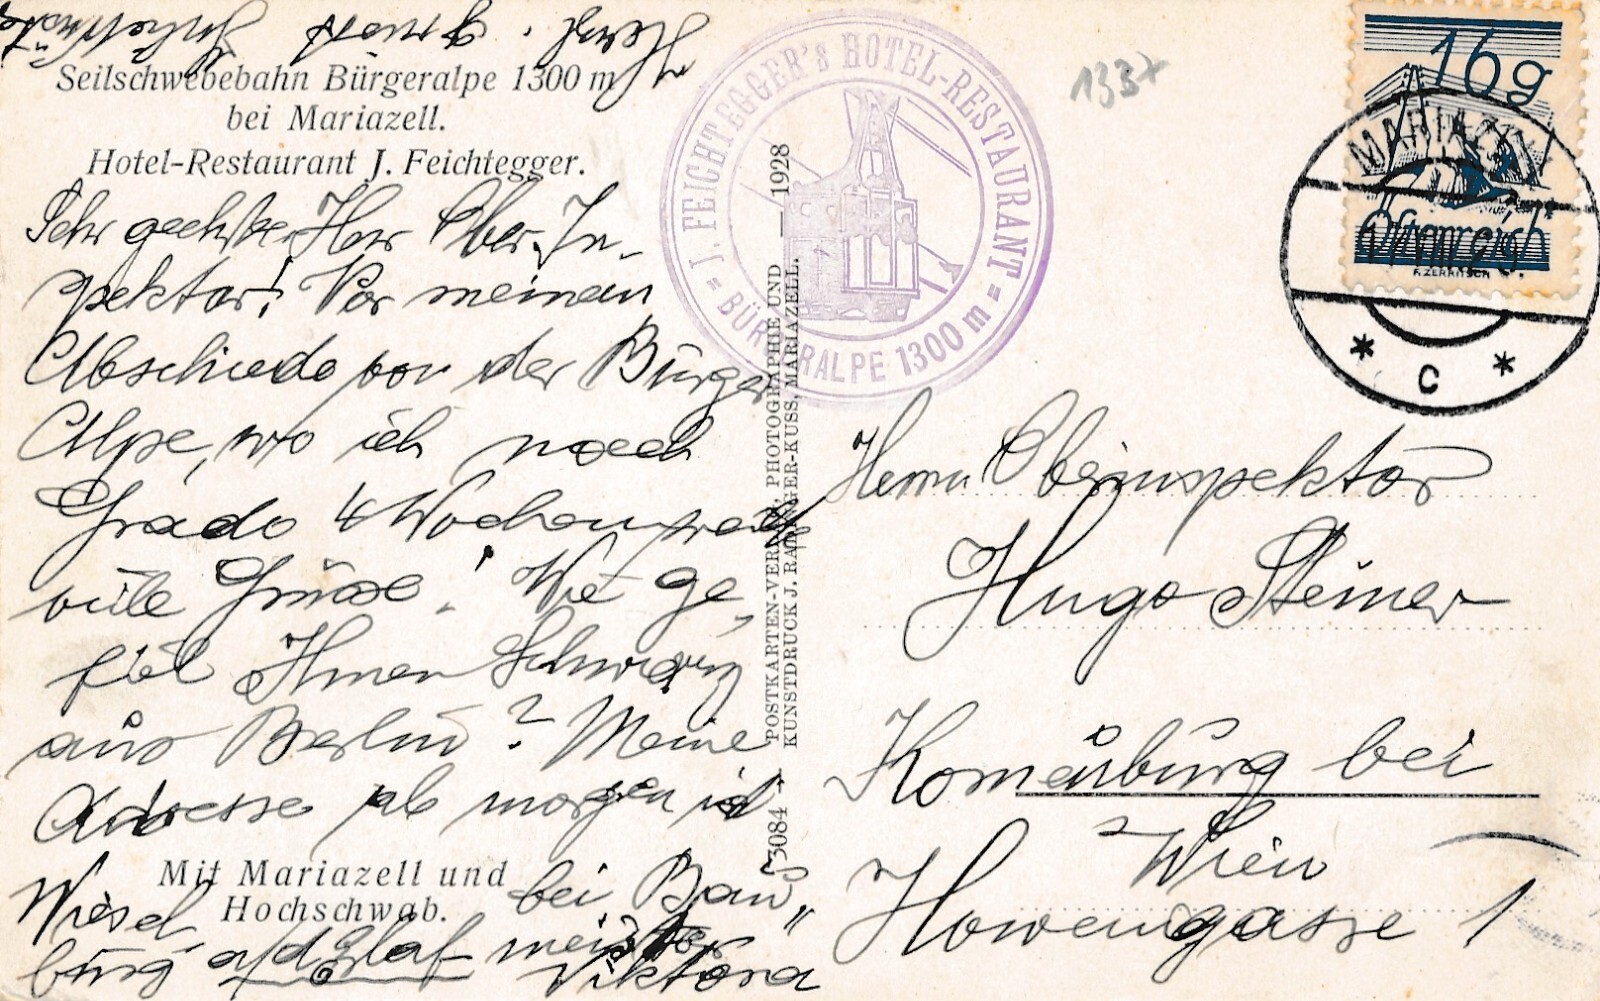 Seilschwebebahn Bürgeralpe 1300 m
bei Mariazell.
Hotel-Restaurant J. Feichtegger.
Sehr geehrter Herr Ober-In-
spektor! Vor meinem
Abschiede von der Bürger
Alpe, wo ich nach
Grado 4 Wochen
viele Grüsse! Wie ge-
fiel Ihnen Schwarz
aus Berlin? Meine
Adresse ab morgen ist
Wiesel- bei Bau-
burg a/d Erlaf meister
Viktora
Herzl.
Mit Mariazell und
Hochschwab.
J. FEICHTEGGER'S HOTEL-RESTAURANT
BÜRGERALPE 1300 m
3084
POSTKARTEN-VERLAG, PHOTOGRAPHIE UND
KUNSTDRUCK J. MARIAZELL.
1928
1337
16g
Österreich
F. ZERRITSCH
MARIAZELL
* C *
Herrn Oberinspektor
Hugo Steiner
Korneuburg bei
Wien
Hovengasse 1